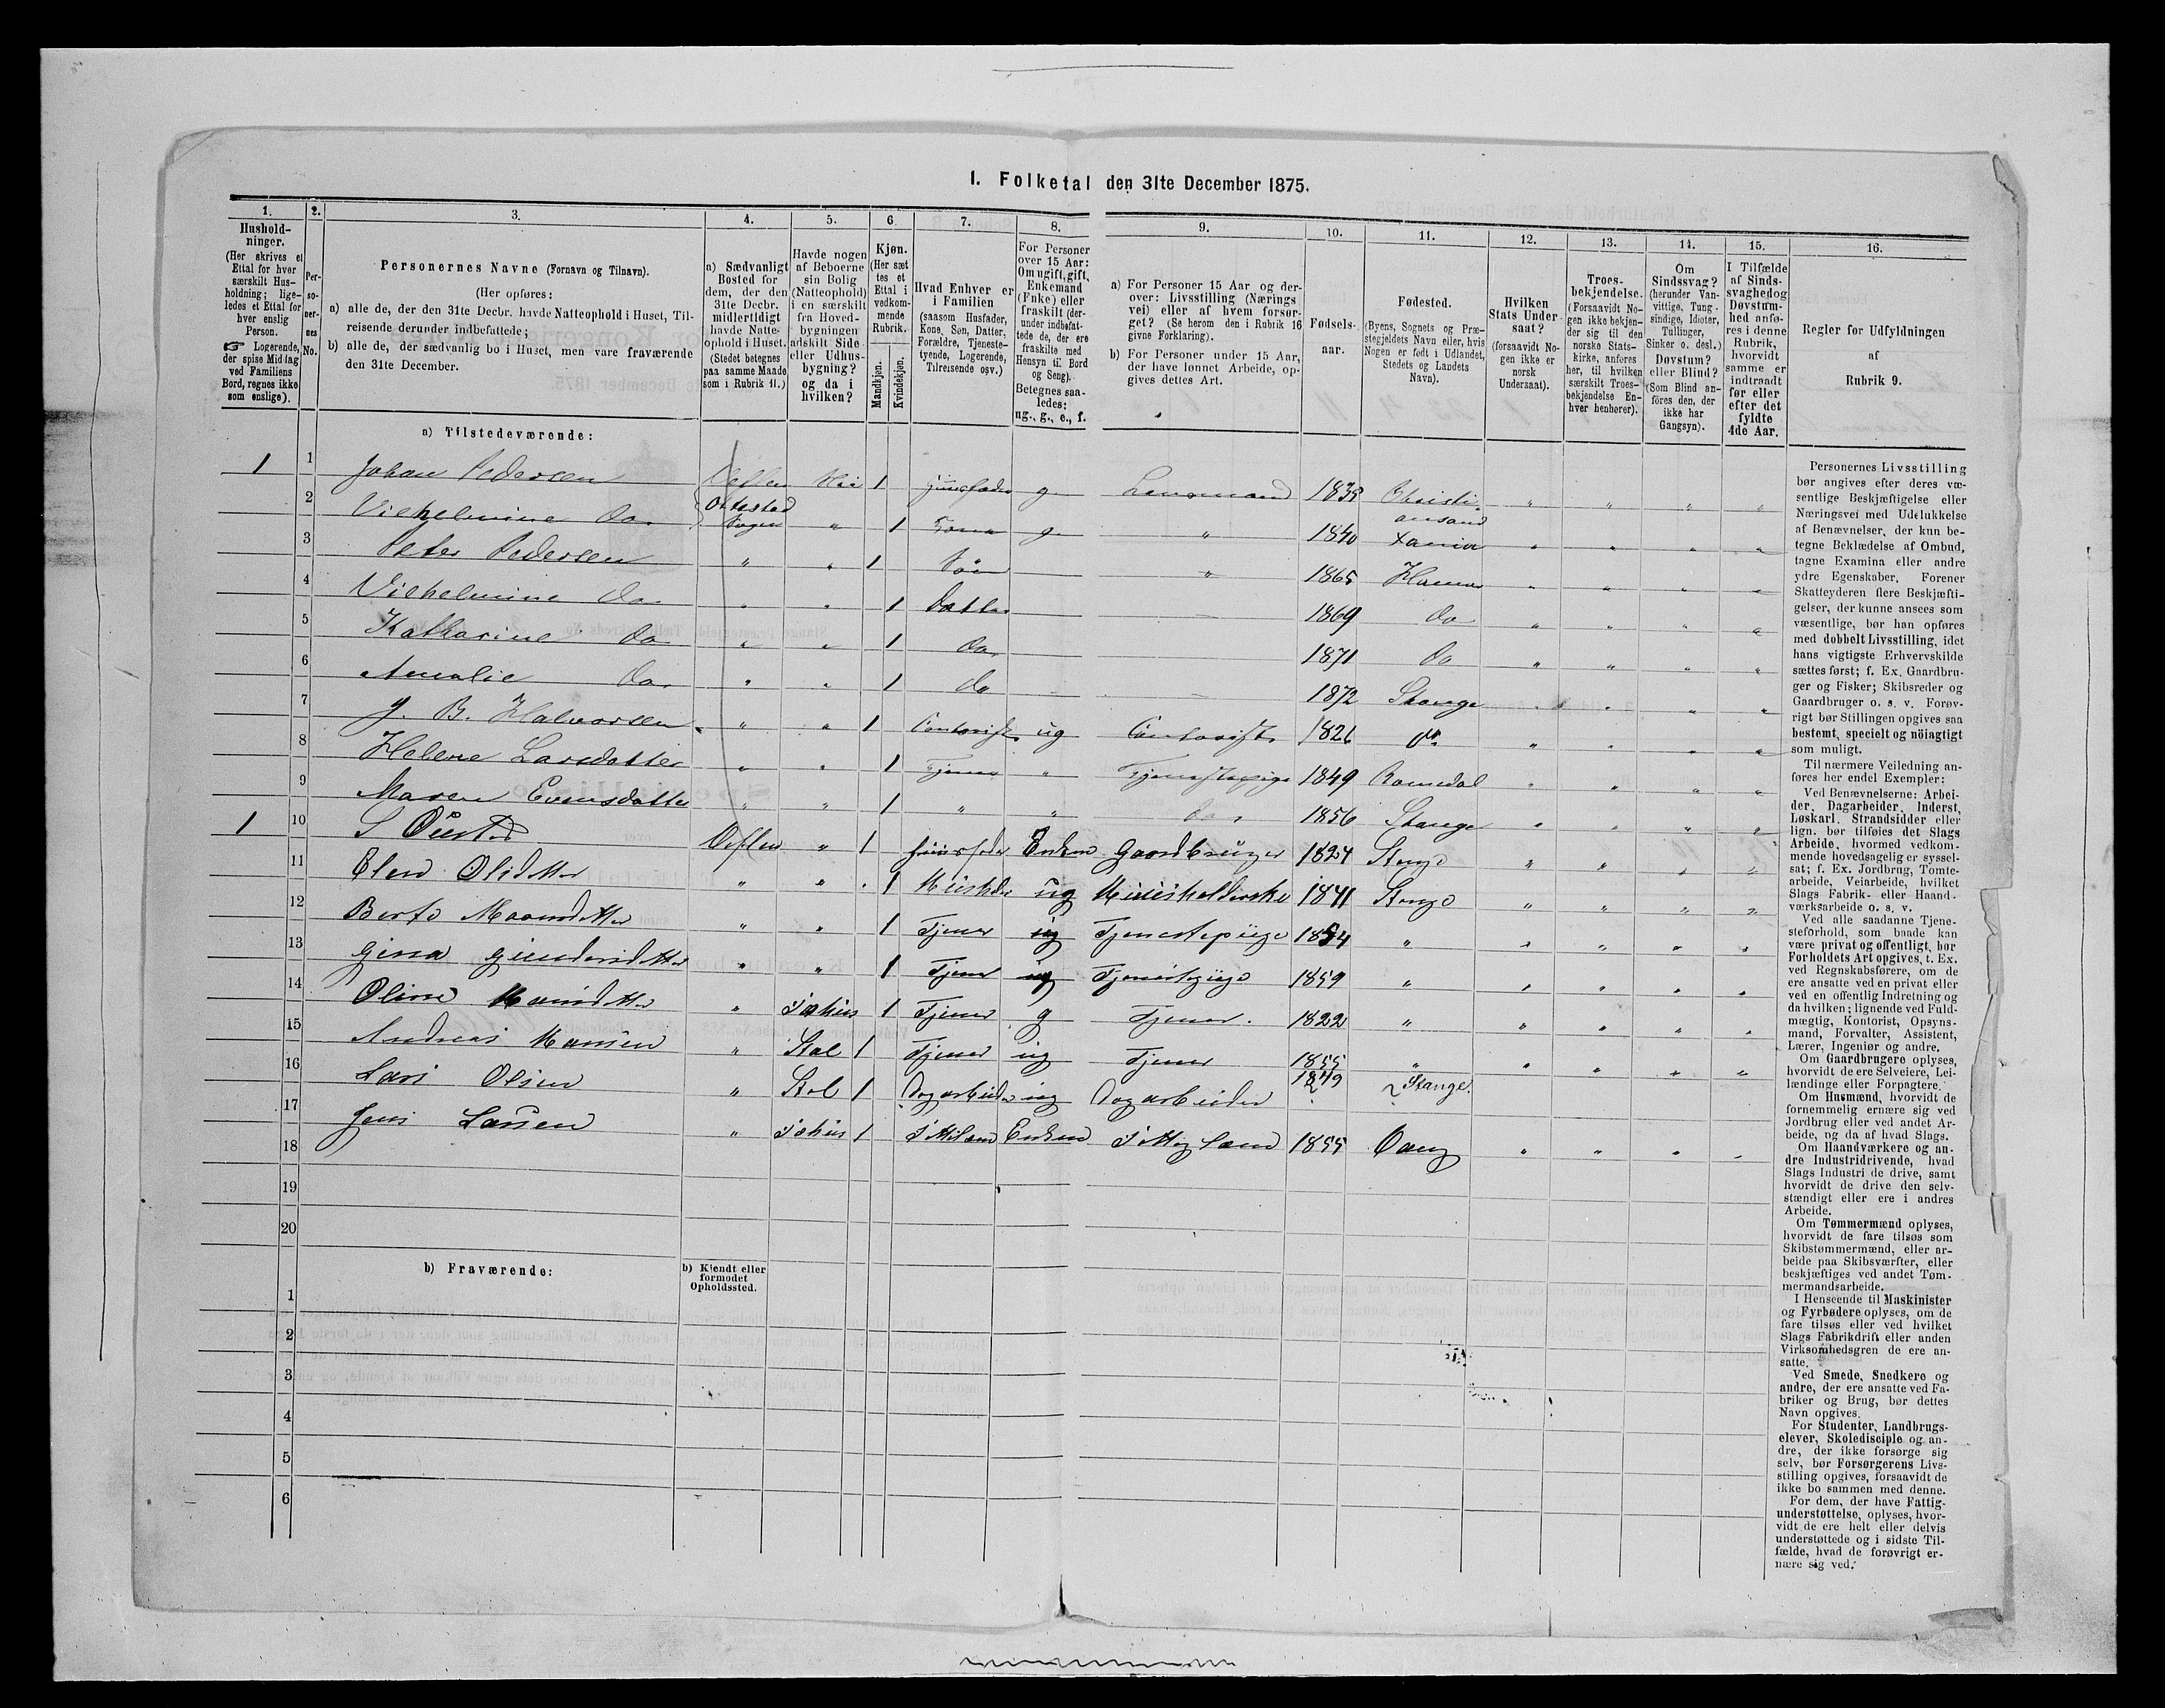 I. Folketal den 31te December 1875.
1. 2. 3. 4. 5. 6. 7. 8. 9. 10. 11. 12. 13. 14. 15. 16.
Hushold-
ninger.
(Her skrives et
Ettal for hver
særskilt Hus-
holdning; lige-
ledes et Ettal for
hver enslig
Person.
☞ Logerende,
der spise Middag
ved Familiens
Bord, regnes ikke
som enslige).
Per-
so-
ner-
nes
No.
Personernes Navne (Fornavn og Tilnavn).
(Her opføres:
a) alle de, der den 31te Decbr. havde Natteophold i Huset, Til-
reisende derunder indbefattede;
b) alle de, der sædvanlig bo i Huset, men vare fraværende
den 31te December.
a) Sædvanligt
Bosted for
dem, der den
31te Decbr.
midlertidigt
havde Natte-
ophold i Huset.
(Stedet betegnes
paa samme Maade
som i Rubrik 11.)
Havde nogen
af Beboerne
sin Bolig
(Natteophold)
i en særskilt
fra Hoved-
bygningen
adskilt Side-
eller Udhus-
bygning?
og da i
hvilken?
Kjøn.
(Her sæt-
tes et
Ettal i
vedkom-
mende
Rubrik.
Mandkjøn.
Kvindekjøn.
Hvad Enhver er
i Familien
(saasom Husfader,
Kone, Søn, Datter,
Forældre, Tjeneste-
tyende, Logerende,
Tilreisende osv.)
For Personer
over 15 Aar:
Om ugift, gift,
Enkemand
(Enke) eller
fraskilt (der-
under indbefat-
tede de, der ere
fraskilte med
Hensyn til Bord
og Seng).
Betegnes saa-
ledes:
ug., g., e., f.
a) For Personer 15 Aar og der-
over: Livsstilling (Nærings-
vei) eller af hvem forsør-
get? (Se herom den i Rubrik 16
givne Forklaring).
b) For Personer under 15 Aar,
der have lønnet Arbeide, op-
gives dettes Art.
Fødsels-
aar.
Fødested.
(Byens, Sognets og Præ-
stegjeldets Navn eller, hvis
Nogen er født i Udlandet,
Stedets og Landets
Navn).
Hvilken
Stats Under-
saat?
(forsaavidt No-
gen ikke er
norsk
Undersaat).
Troes-
bekjendelse.
(Forsaavidt No-
gen ikke bekjen-
der sig til den
norske Stats-
kirke, anføres
her, til hvilken
særskilt Troes-
bekjendelse En-
hver henhører).
Om
Sindssvag?
(herunder Van-
vittige, Tung-
sindige, Idioter,
Tullinger,
Sinker o. desl.)
Døvstum?
eller Blind?
(Som Blind an-
føres den, der
ikke har
Gangsyn).
I Tilfælde
af Sinds-
svaghed og
Døvstum-
hed anfø-
res i denne
Rubrik,
hvorvidt
samme er
indtraadt
før eller
efter det
fyldte
4de Aar.
Regler for Udfyldningen
af
Rubrik 9.
a) Tilstedeværende:
1 1 Johan Pedersen 1 g. Lensmand 1835 Christi-
ansand
2 Vilhelmine do. Ottestad Sogn " 1 Kone g. " 1840 Xania " " " "
3 Peter Pedersen " " 1 Søn " 1865 Hamar " " " "
4 Vilhelmine do " " 1 Datter 1869 do " " " "
5 Katharine do " " 1 do. 1871 do " " " "
6 Amalie do. " " 1 do 1872 Stange " " " "
7 J. B. Halvorsen " " 1 Contorist ug Contorist 1826 do " " " "
8 Helene Larsdatter " " 1 Tjener " Tjenestepige 1849 Romedal " " " "
9 Maren Evensdatter " " 1 " " do. 1856 Stange " " " "
1 10 " 1 Husfader Enkem Gaardbruger 1824 Stange " " " "
11 " " 1 ug Huusholderske 1841 Stange " " " "
12 " " 1 Tjener ug Tjenestepige 1854 " " " " "
13 Gina " " 1 Tjener ug Tjenestepige 1859 " " " " "
14 Oline " 1 Tjener g Tjener. 1822 " " " " "
15 Andreas Hansen " Stal 1 Tjener ug Tjener 1855 " " " " "
16 Lars Olsen " Stal 1 Dagarbeider ug Dagarbeider 1849 Stange.
17 Jens Larsen " 1 Enkem 1855 Vang " " " "
18
19
20
b) Fraværende:
b) Kjendt eller
formodet
Opholdssted.
1
2
3
4
5
6
Personernes Livsstilling
bør angives efter deres væ-
sentlige Beskjæftigelse eller
Næringsvei med Udelukkelse
af Benævnelser, der kun be-
tegne Beklædelse af Ombud,
tagne Examina eller andre
ydre Egenskaber. Forener
Skatteyderen flere Beskjæfti-
gelser, der kunne ansees som
væsentlige, bør han opføres
med dobbelt Livsstilling, idet
hans vigtigste Erhvervskilde
sættes først; f. Ex. Gaardbru-
ger og Fisker; Skibsreder og
Gaardbruger o. s. v. Forøv-
rigt bør Stillingen opgives saa
bestemt, specielt og nöiagtigt
som muligt.
Til nærmere Veiledning an-
føres her endel Exempler:
Ved Benævnelserne: Arbei-
der, Dagarbeider, Inderst,
Løskarl, Strandsidder eller
lign. bør tilføies det Slags
Arbeide, hvormed vedkom-
mende hovedsagelig er syssel-
sat; f. Ex. Jordbrug, Tomte-
arbeide, Veiarbeide, hvilket
Slags Fabrik- eller Haand-
værksarbeide o. s. v.
Ved alle saadanne Tjene-
steforhold, som baade kan
være privat og offentligt, bør
Forholdets Art opgives, t. Ex.
ved Regnskabsførere, om de
ere ansatte ved en privat eller
ved en offentlig Indretning og
da hvilken; lignende ved Fuld-
mægtig, Kontorist, Opsyns-
mand, Forvalter, Assistent,
Lærer, Ingeniør og andre.
Om Gaardbrugere oplyses,
hvorvidt de ere Selveiere, Lei-
lændinge eller Forpagtere.
Om Husmænd, hvorvidt de
fornemmelig ernære sig ved
Jordbrug eller ved andet Ar-
beide, og da af hvad Slags.
Om Haandværkere og an-
dre Industridrivende, hvad
Slags Industri de drive, samt
hvorvidt de drive den selv-
stændigt eller ere i andres
Arbeide.
Om Tømmermænd oplyses,
hvorvidt de fare tilsøs som
Skibstømmermænd, eller ar-
beide paa Skibsværfter, eller
beskjæftiges ved andet Tøm-
mermandsarbeide.
I Henseende til Maskinister
og Fyrbødere oplyses, om de
fare tilsøs eller ved hvilket
Slags Fabrikdrift eller anden
Virksomhedsgren de ere an-
satte.
Ved Smede, Snedkere og
andre, der ere ansatte ved Fa-
briker og Brug, bør dettes
Navn opgives.
For Studenter, Landbrugs-
elever, Skoledisciple og an-
dre, der ikke forsørge sig
selv, bør Forsørgerens Livs-
stilling opgives, forsaavidt de
ikke bo sammen med denne.
For dem, der have Fattig-
understøttelse, oplyses, hvor-
vidt de ere helt eller delvis
understøttede og i sidste Til-
fælde, hvad de forøvrigt er-
nære sig ved.